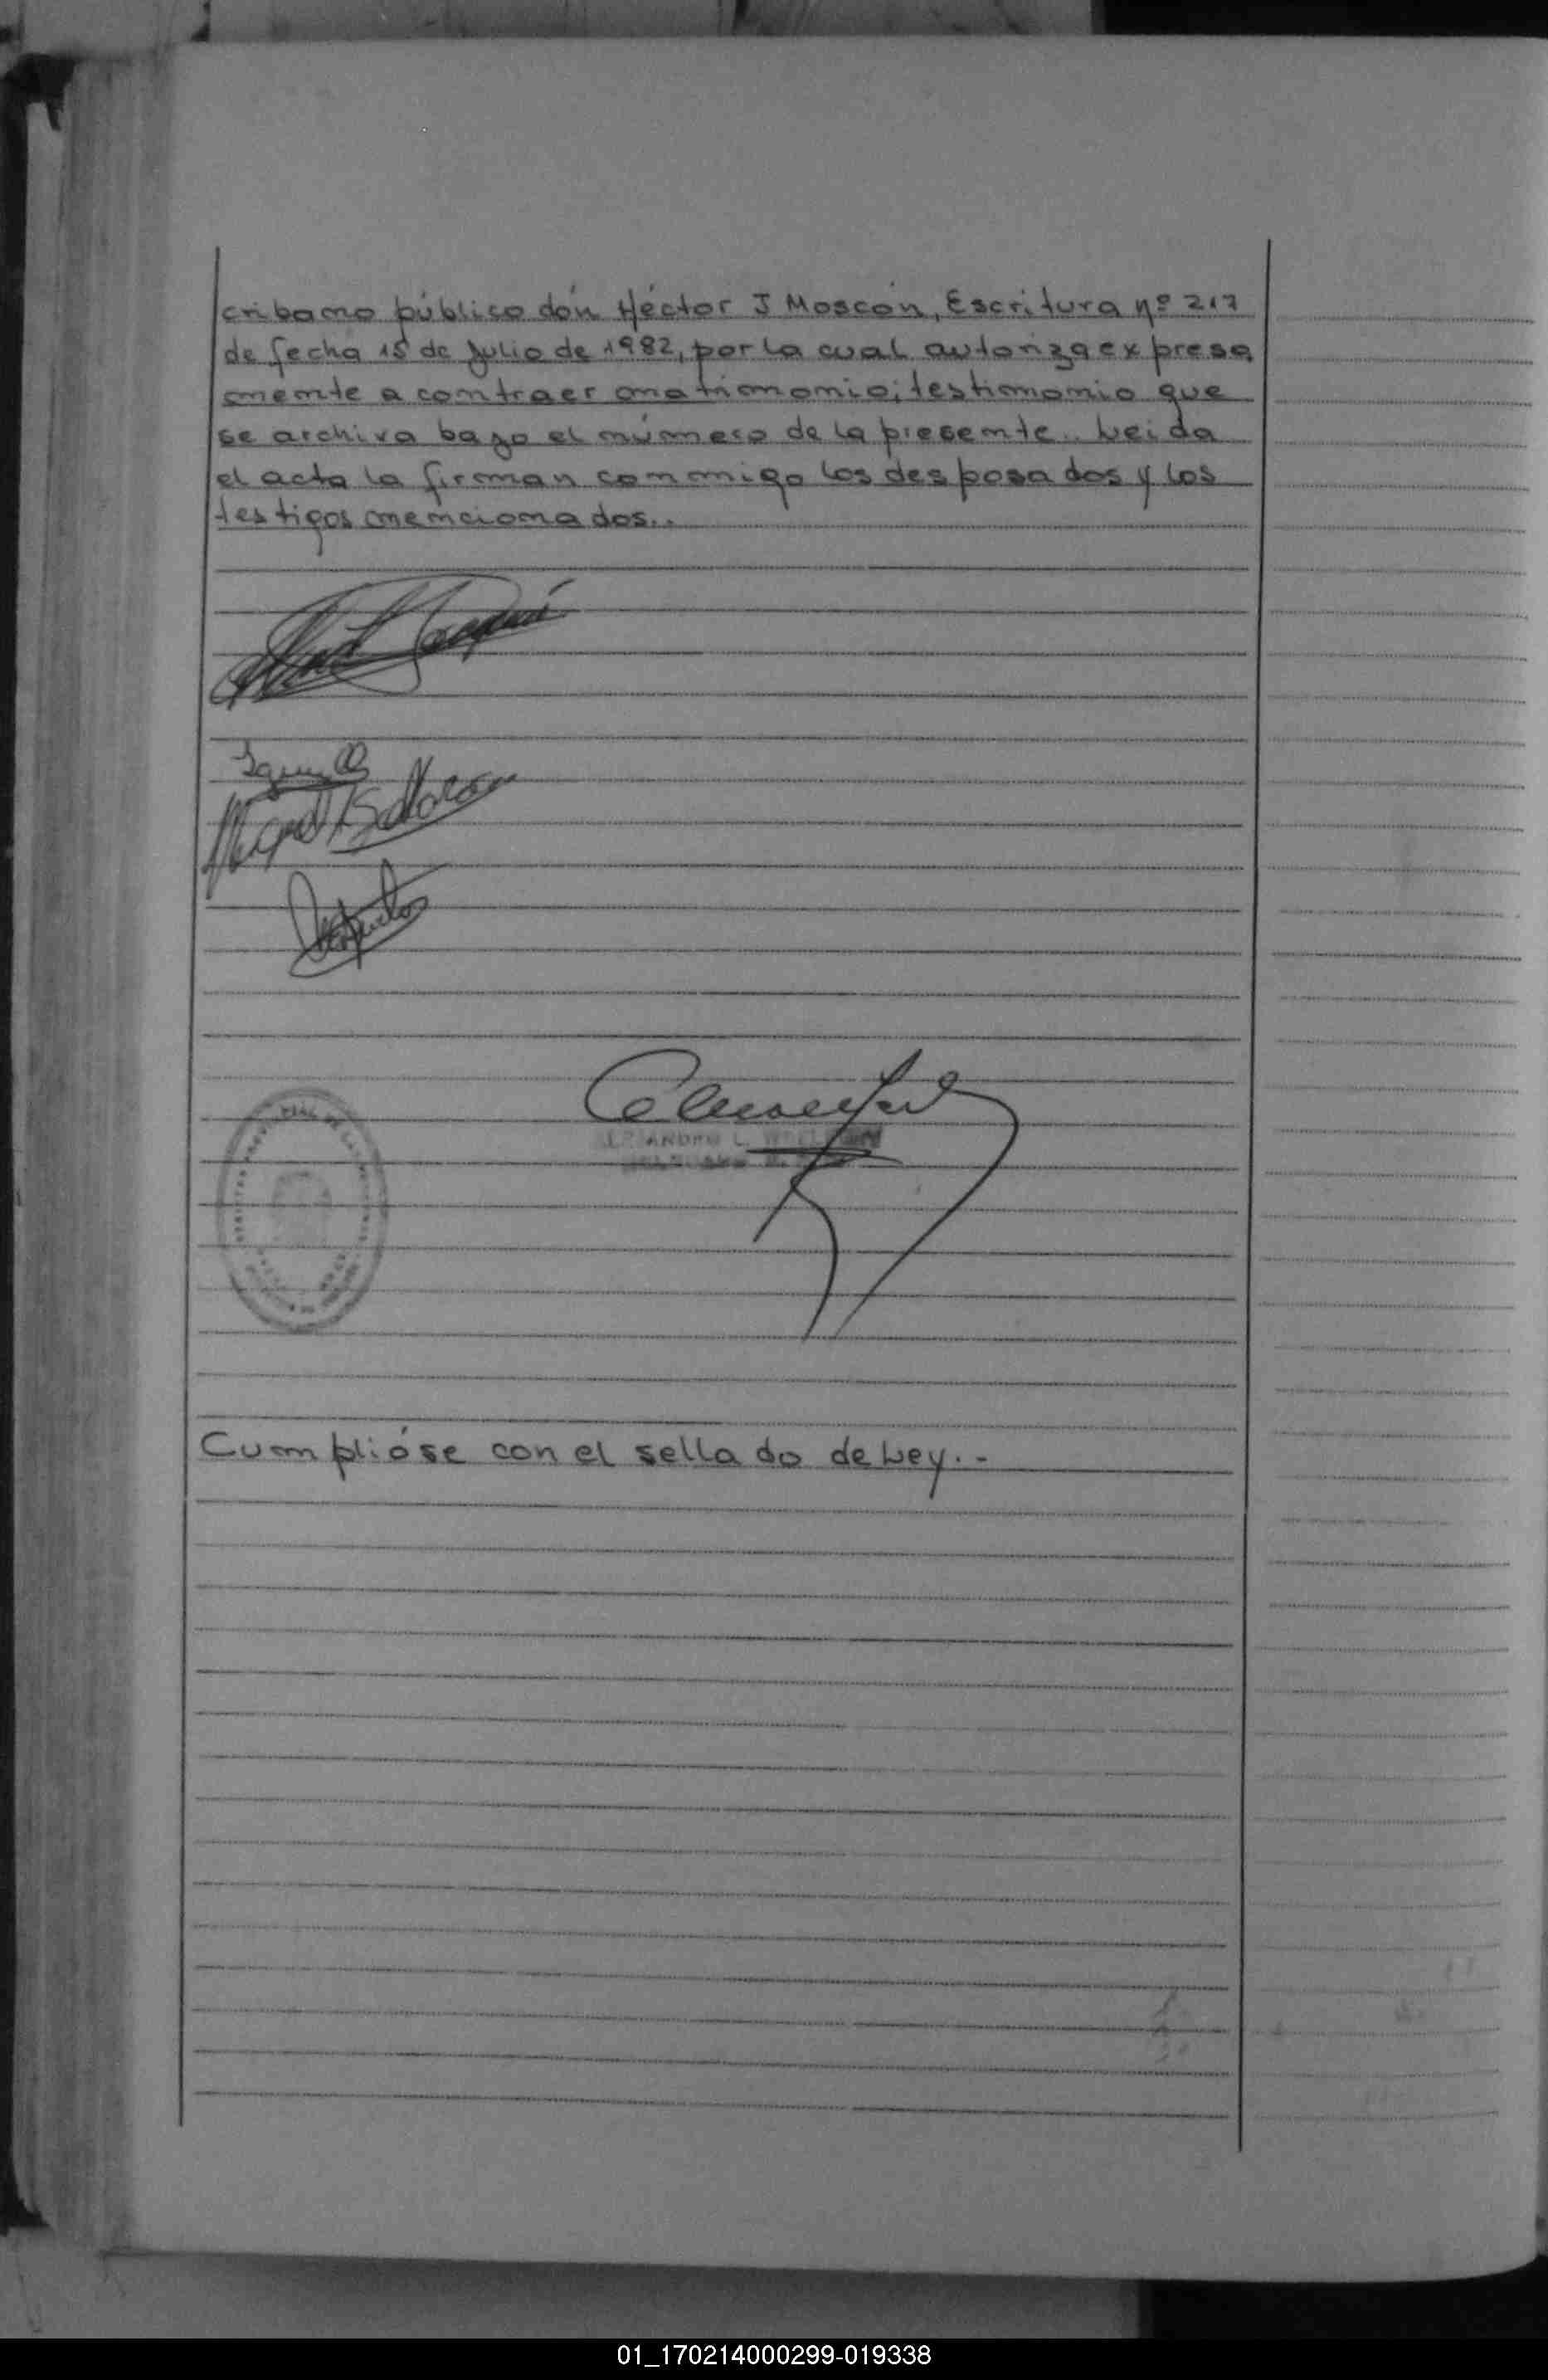 cribano público don Héctor J Moscón, Escritura nº 217
de fecha 15 de Julio de 1982, por la cual autoriza expresa
mente a contraer matrimonio; testimonio que
se archiva bajo el número de la presente.. Leida
el acta la firman conmigo los desposados y los
testigos mencionados..
ALEJANDRO L.
Cumplióse con el sellado de Ley..-
01_170214000299-019338